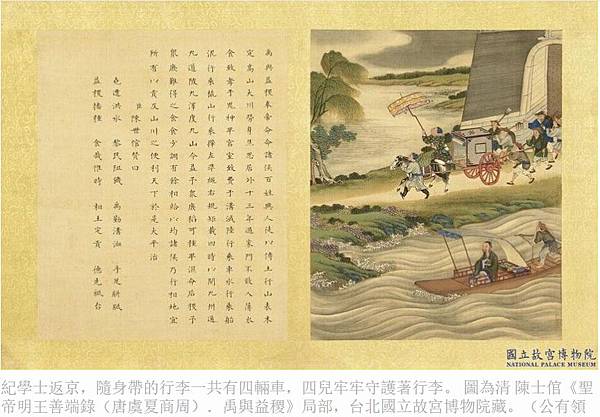 禹與益稷奉帝命命諸侯百姓興人徒以傅土行山表木
定高山大川勞身焦思居外十三年過家門不敢入薄衣
食致孝于鬼神卑宮室致費于溝淢陸行乘車水行乘船
泥行乘橇山行乘檋左準繩右規矩載四時以開九州通
九道陂九澤度九山令益予眾庶稻可種卑濕命后稷予
眾庶難得之食食少調有餘相給以均諸侯乃行相地宜
所有以貢及山川之便利天下於是太平治
臣陳世倌贊曰
堯遭洪水 黎民阻饑 禹勤溝洫 手足胼胝
益稷播種 食哉惟時 相土定貢 德先祗台
國立故宮博物院
NATIONAL PALACE MUSEUM
紀學士返京，隨身帶的行李一共有四輛車，四兒牢牢守護著行李。 圖為清 陳士倌《聖
帝明王善端錄（唐虞夏商周）．禹與益稷》局部，台北國立故宮博物院藏。（公有領